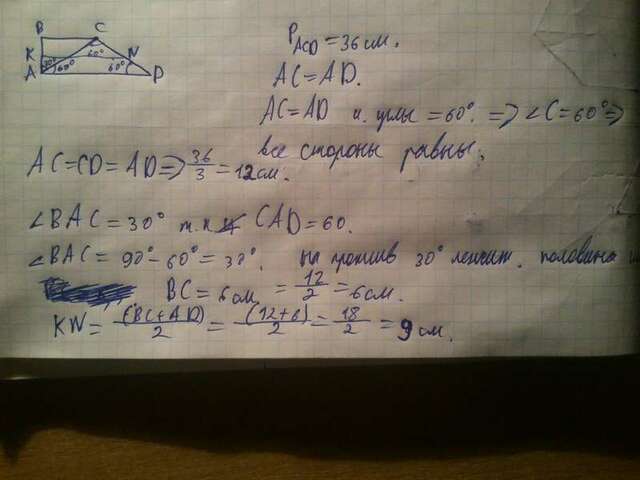 B C
K N
A D
30° 60° 60° 60°
P ACD = 36 см.
AC = AD.
AC = AD и углы = 60°. => ∠C = 60° =>
все стороны равны.
AC = CD = AD => 36/3 = 12 см.
∠BAC = 30° т.к CAD = 60.
∠BAC = 90° - 60° = 30°. на против 30° лежит. половина
BC = 6 см = 12/2 = 6 см.
KN = (BC + AD)/2 = (12 + 6)/2 = 18/2 = 9 см.